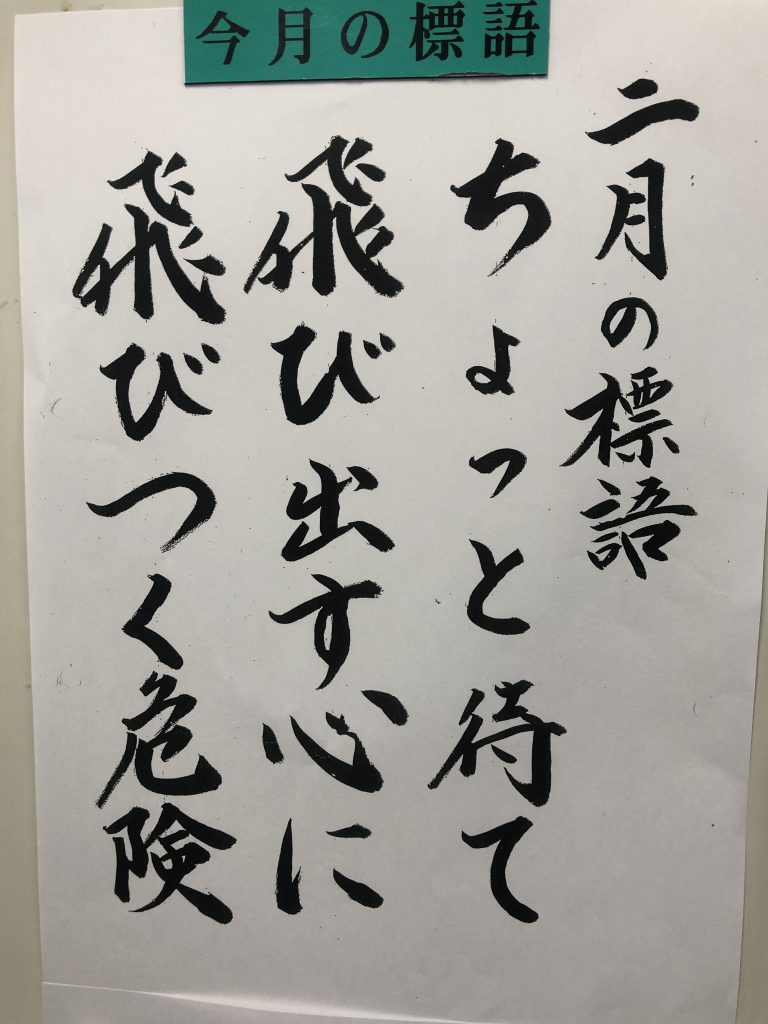 今月の標語
二月の標語
ちょっと待て
飛び出す心に
飛びつく危険